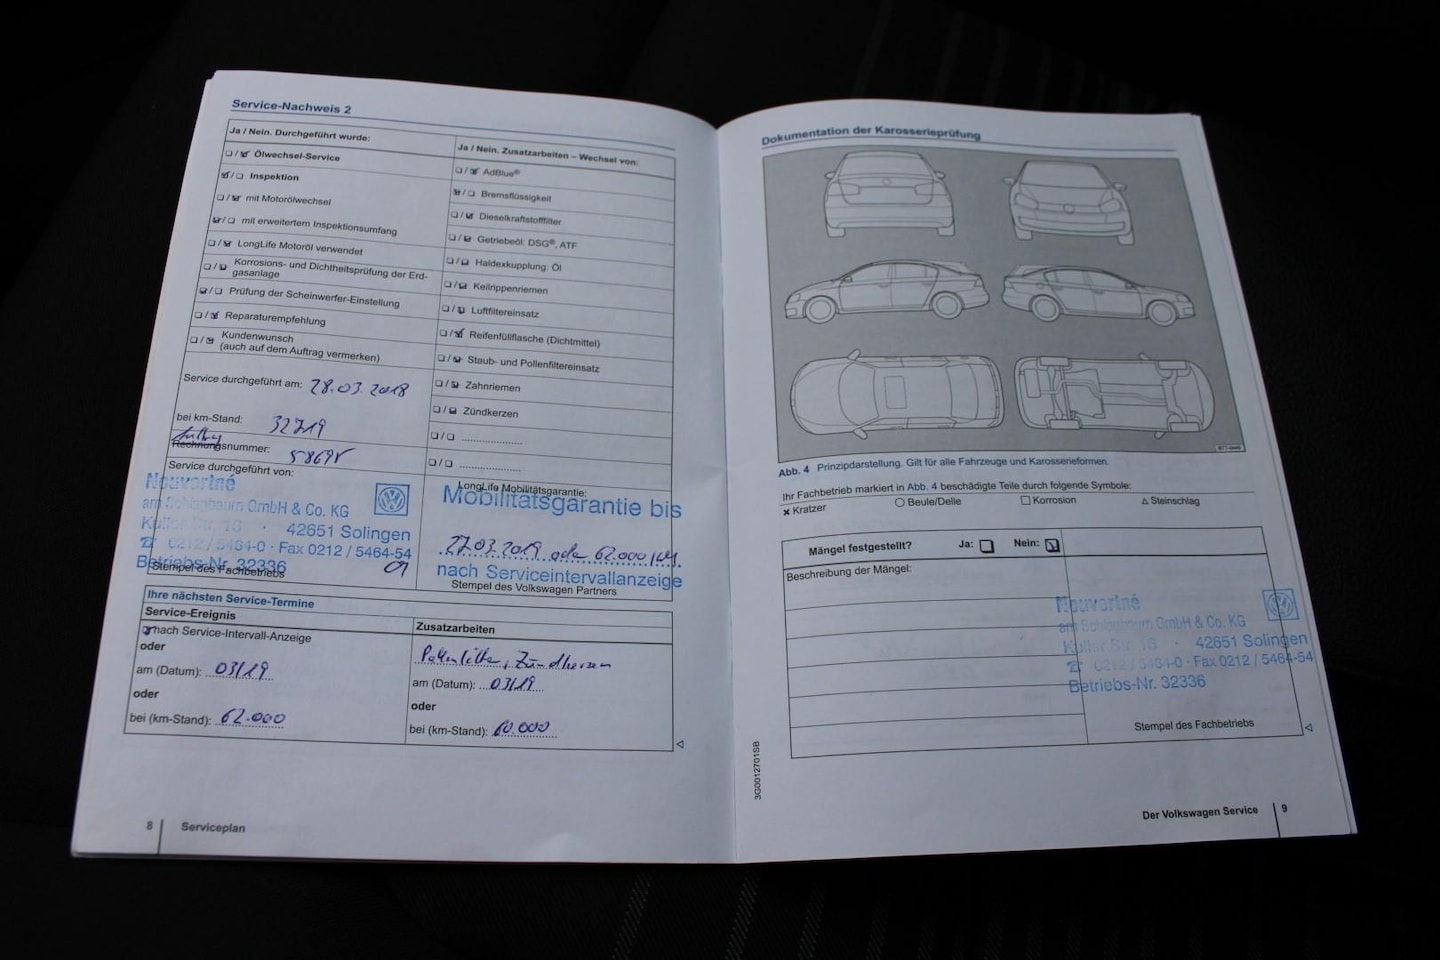 Service-Nachweis 2
Ja / Nein. Durchgeführt wurde:
Ölwechsel-Service
Inspektion
mit Motorölwechsel
mit erweitertem Inspektionsumfang
LongLife Motoröl verwendet
Korrosions- und Dichtheitsprüfung der Erd-
gasanlage
Prüfung der Scheinwerfer-Einstellung
Reparaturempfehlung
Kundenwunsch
(auch auf dem Auftrag vermerken)
Service durchgeführt am: 28.03.2018
bei km-Stand: 32719
Rechnungsnummer:
Service durchgeführt von:
Neuvertné
am Schlagbaum GmbH & Co. KG
Kuller Str. 16 · 42651 Solingen
☎ 0212 / 5464-0 · Fax 0212 / 5464-54
Betriebs-Nr. 32336
Stempel des Fachbetriebs
Ja / Nein. Zusatzarbeiten – Wechsel von:
AdBlue®
Bremsflüssigkeit
Dieselkraftstofffilter
Getriebeöl: DSG®, ATF
Haldexkupplung: Öl
Keilrippenriemen
Luftfiltereinsatz
Reifenfüllflasche (Dichtmittel)
Staub- und Pollenfiltereinsatz
Zahnriemen
Zündkerzen
LongLife Mobilitätsgarantie:
Mobilitätsgarantie bis
27.03.2019 oder 62.000 km
nach Serviceintervallanzeige
Stempel des Volkswagen Partners
Ihre nächsten Service-Termine
Service-Ereignis
nach Service-Intervall-Anzeige
oder
am (Datum): 03/19
oder
bei (km-Stand): 62.000
Zusatzarbeiten
Pollenfilter, Zündkerzen
am (Datum): 03/19
oder
bei (km-Stand): 60.000
8 Serviceplan
Dokumentation der Karosserieprüfung
Abb. 4 Prinzipdarstellung. Gilt für alle Fahrzeuge und Karosserieformen.
Ihr Fachbetrieb markiert in Abb. 4 beschädigte Teile durch folgende Symbole:
× Kratzer ○ Beule/Delle □ Korrosion △ Steinschlag
Mängel festgestellt? Ja: Nein:
Beschreibung der Mängel:
Neuvertné
am Schlagbaum GmbH & Co. KG
Kuller Str. 16 · 42651 Solingen
☎ 0212 / 5464-0 · Fax 0212 / 5464-54
Betriebs-Nr. 32336
Stempel des Fachbetriebs
3G0012701SB
Der Volkswagen Service 9